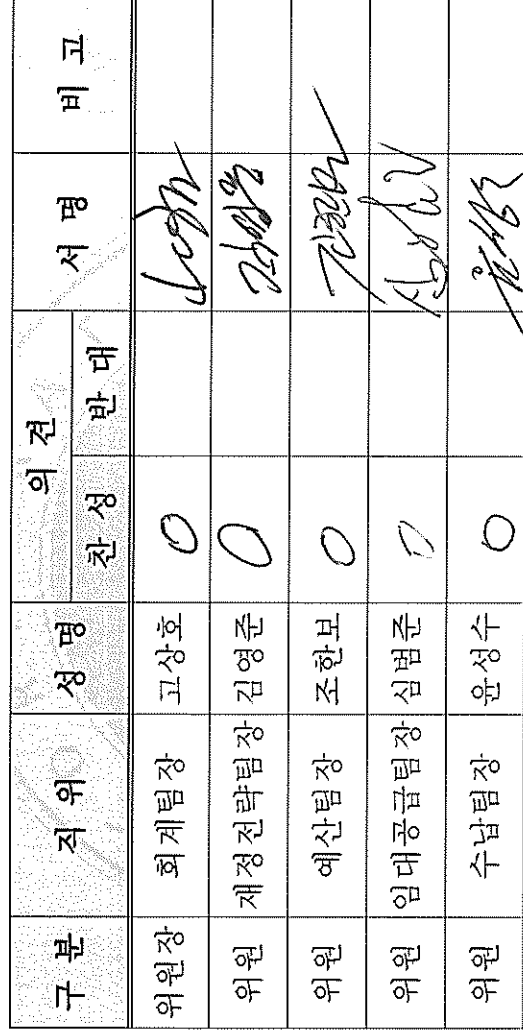 구 분 직 위 성 명 의 견 서 명 비 고
찬 성 반 대
위원장 회계팀장 고상호 O
위원 재정전략팀장 김영준 O
위원 예산팀장 조한보 O
위원 임대공급팀장 심범준 O
위원 수납팀장 윤성수 O